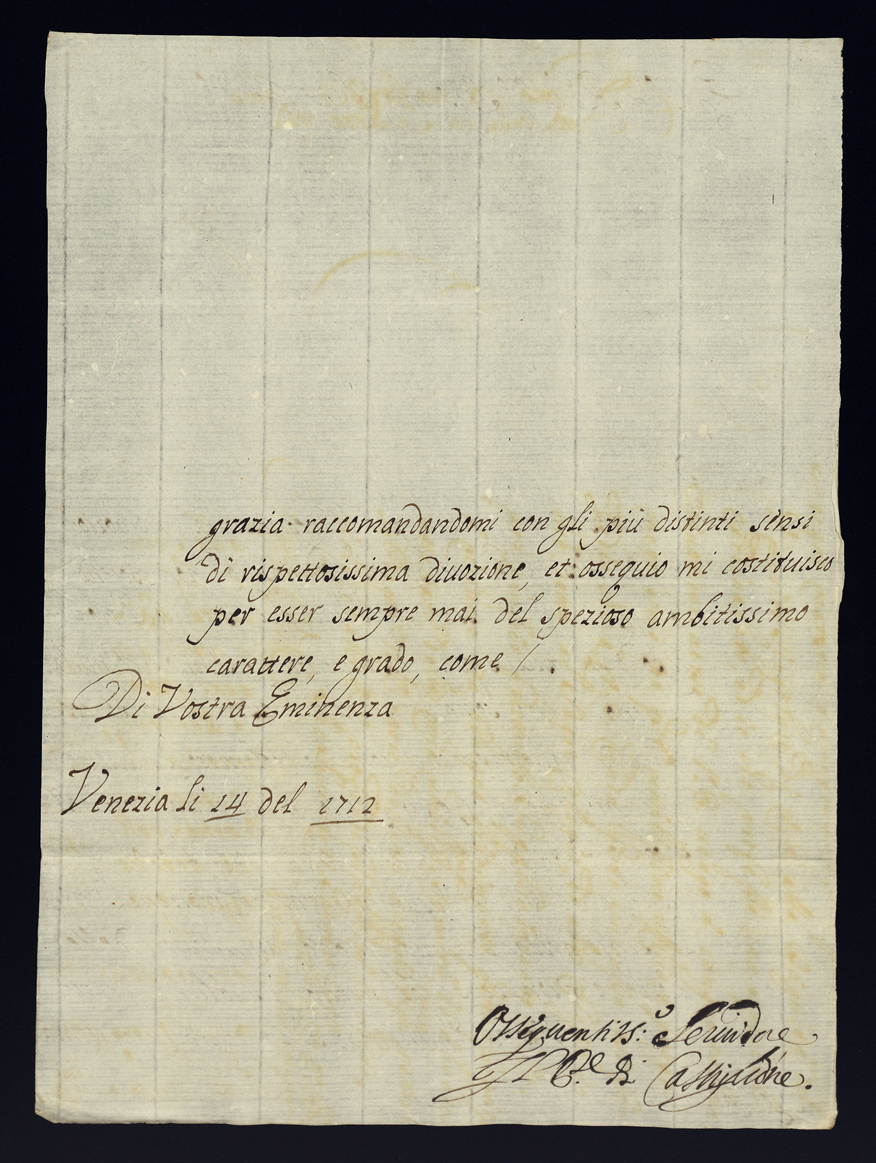 grazia raccomandandomi con gli più distinti sensi
di rispettosissima divozione, et ossequio mi costituisco
per esser sempre mai del spezioso ambitissimo
carattere, e grado, come /.
Di Vostra Eminenza
Venezia li 14 del 1712
Ossequentiss:o Servidore
Il P.e di Castiglione.